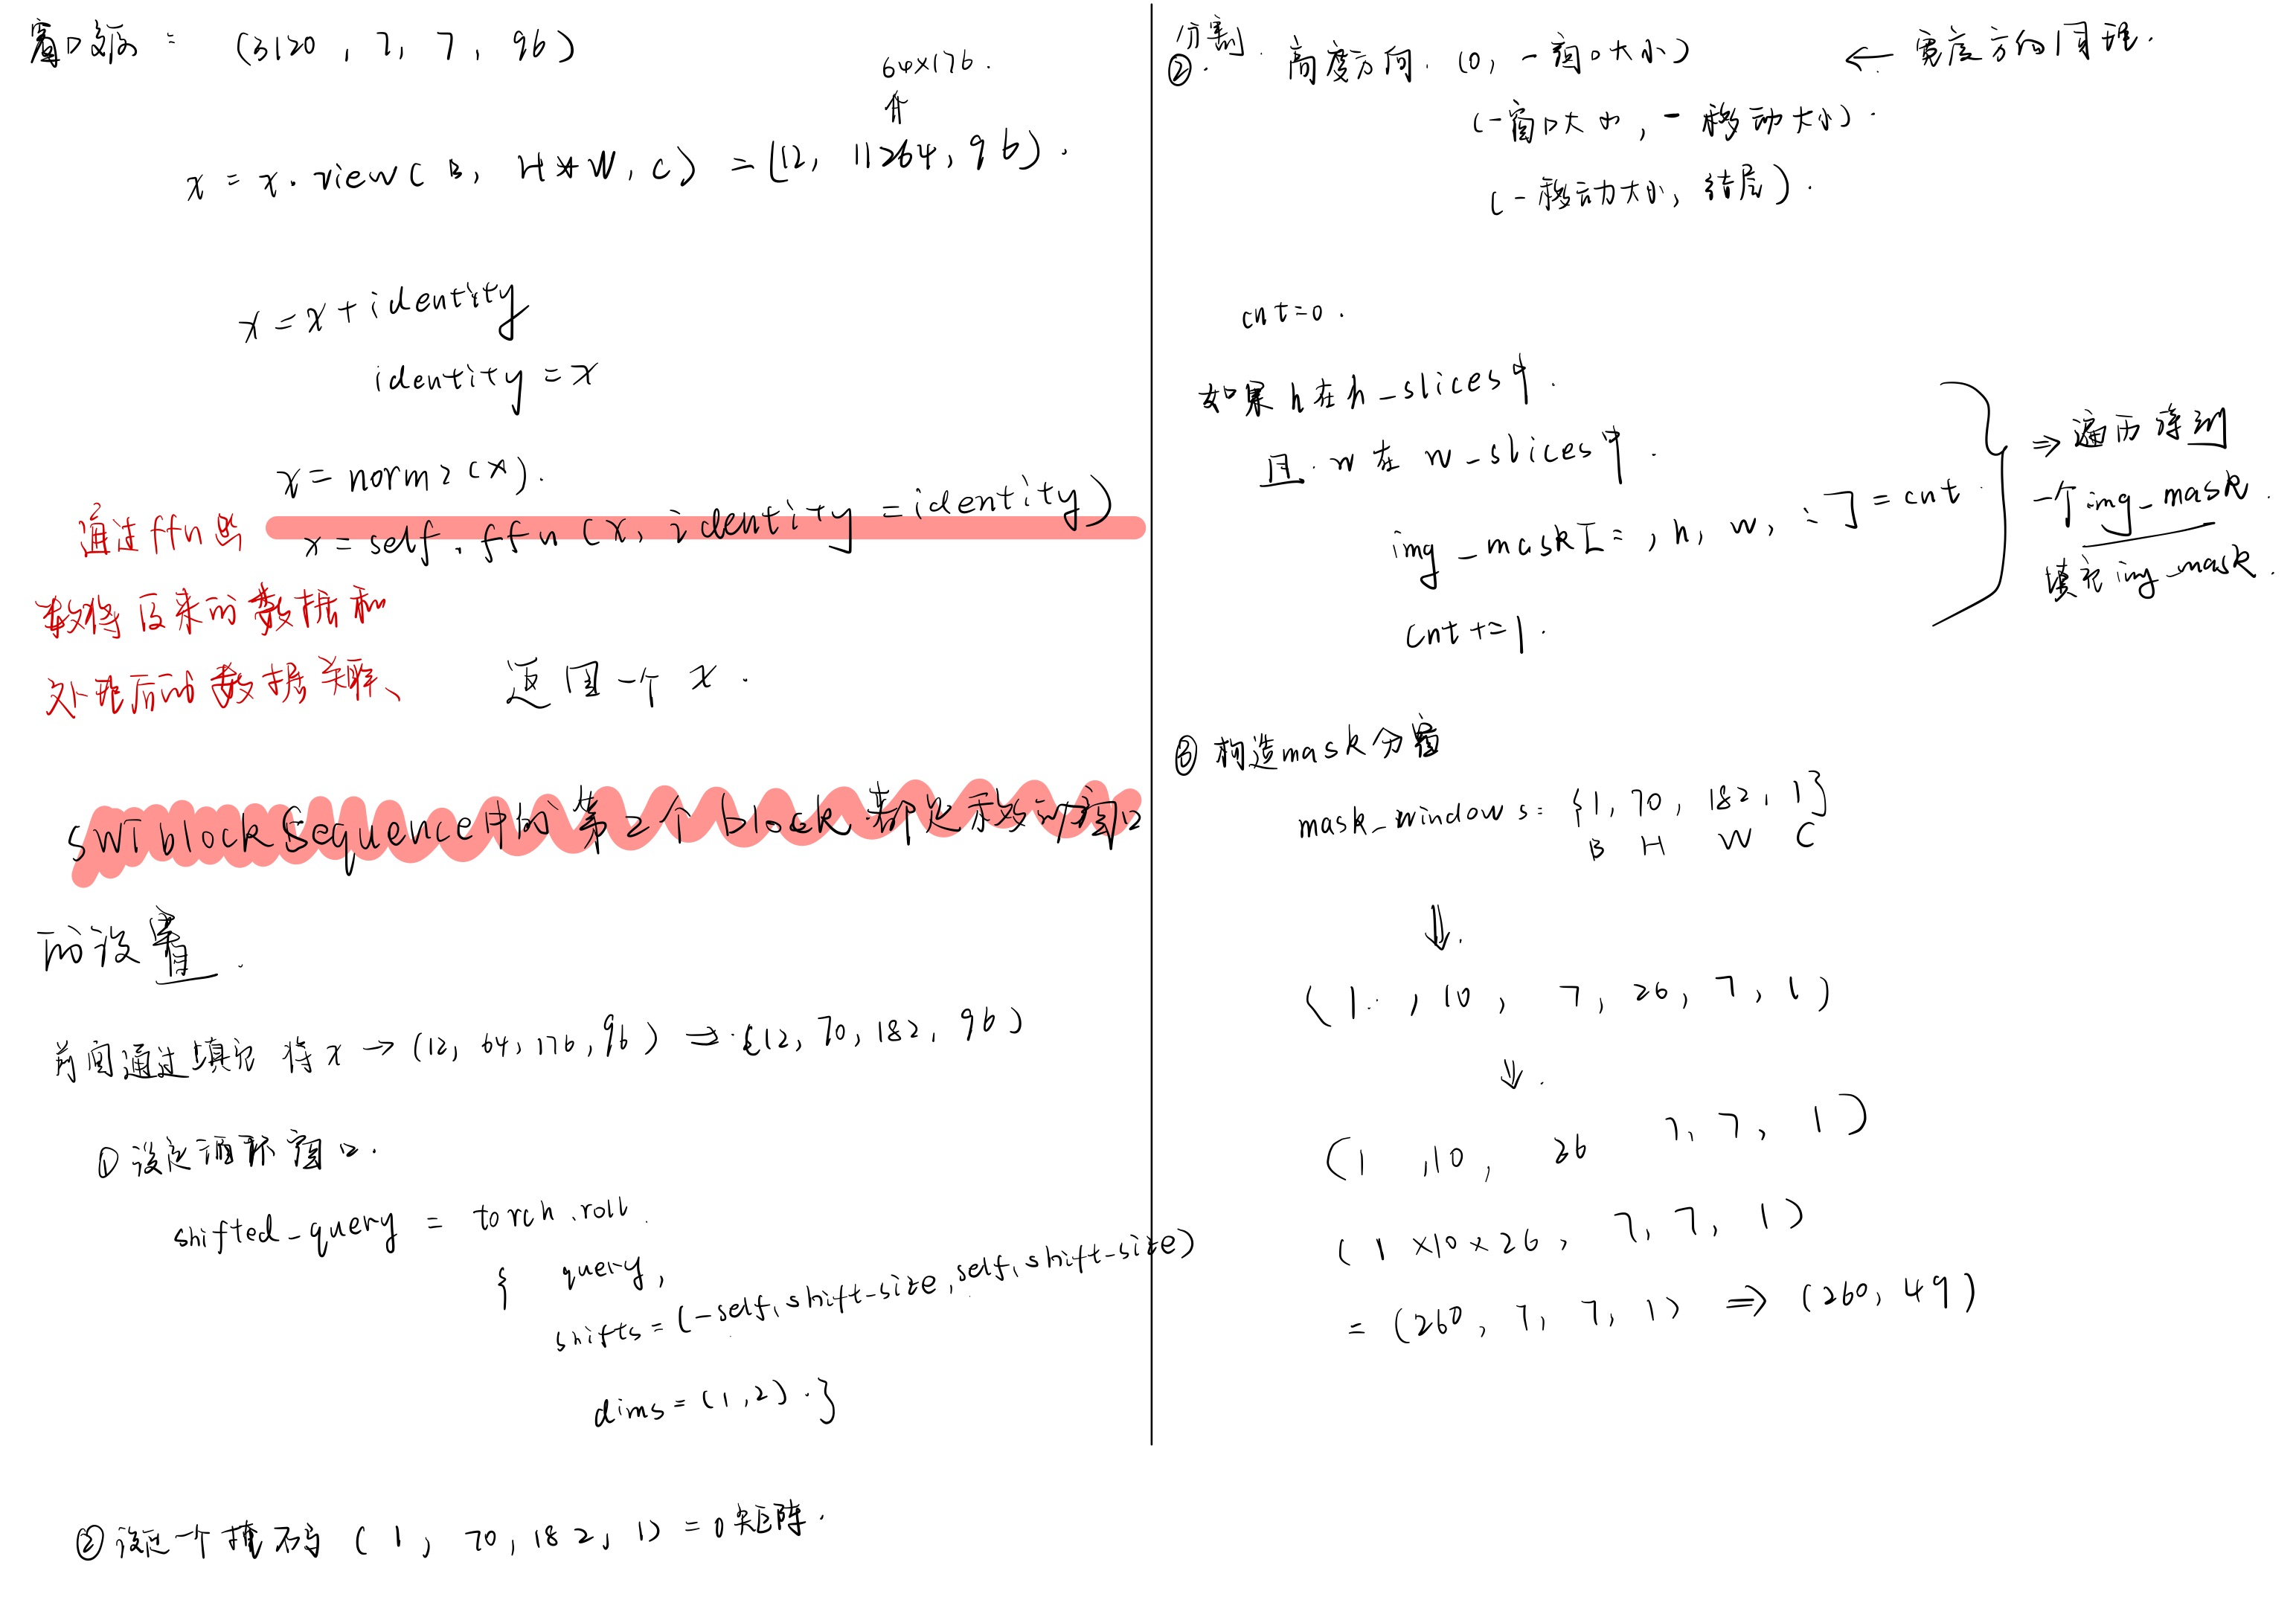 窗口数: (3120, 7, 7, 96)
64×176.
x = x.view(B, H*W, C) = (12, 11264, 96).
x = x + identity
identity = x
x = norm2(x).
x = self.ffn(x, identity = identity)
通过ffn函
数将原来的数据和
处理后的数据关联、
返回一个 x.
SWT blockSequence中的第2个block都是移动窗口
的设置.
前面通过填充 将x → (12, 64, 176, 96) ⇒ (12, 70, 182, 96)
① 设定循环窗口.
shifted_query = torch.roll
{ query,
shifts = (-self.shift-size, self.shift-size)
dims = (1,2).}
② 设定一个掩码 (1, 70, 182, 1) = 0矩阵.
分割.
②. 高度方向. (0, -窗口大小) ← 宽度方向同理.
(-窗口大小, -移动大小).
(-移动大小, 结尾).
cnt=0.
如果 h在h_slices中.
且. w在 w_slices中.
img_mask[:, h, w, :] = cnt.
cnt += 1.
⇒ 遍历得到
一个img_mask.
填充img_mask.
③ 构造mask分窗
mask_windows: {1, 70, 182, 1}
B H W C
⇓.
(1, 10, 7, 26, 7, 1)
⇓.
(1, 10, 26 7, 7, 1)
(1×10×26, 7, 7, 1)
= (260, 7, 7, 1) ⇒ (260, 49)